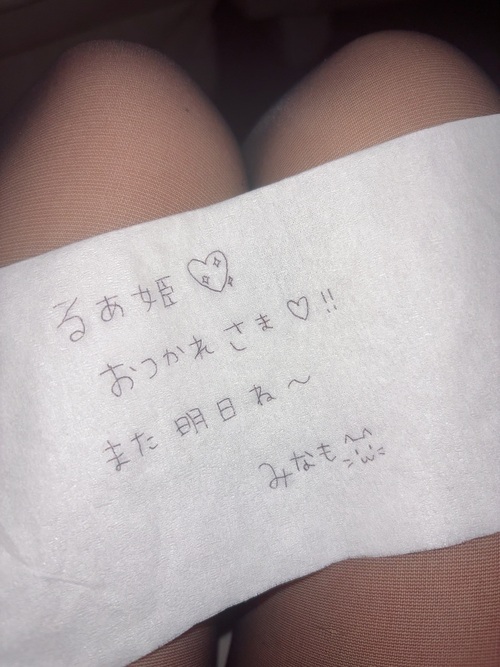 るあ姫♡
おつかれさま♡!!
また明日ね〜
みなも